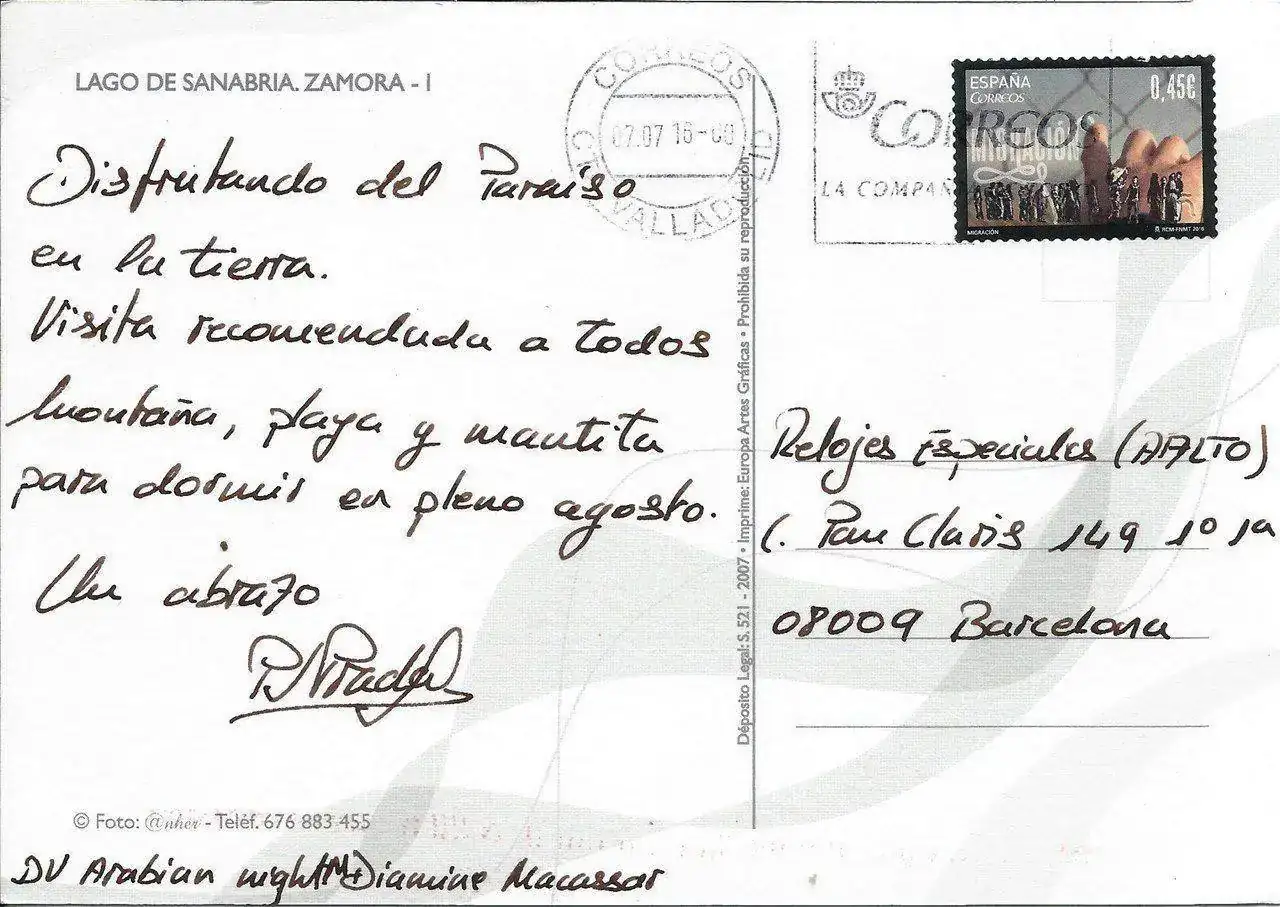 LAGO DE SANABRIA. ZAMORA - I
CORREOS
07.07 16-08
VALLAD
CORREOS
LA COMPAÑ
ESPAÑA
CORREOS
0,45€
MIGRACIÓN
MIGRACIÓN
RCM-FNMT 2016
Disfrutando del Paraíso
en la tierra.
Visita recomendada a todos
montaña, playa y mantita
para dormir en pleno agosto.
Un abrazo
Déposito Legal: S. 521 - 2007 • Imprime: Europa Artes Gráficas • Prohibida su reproducción
Relojes Especiales
C. Pau Claris 149 1º 1a
08009 Barcelona
© Foto: @nher - Teléf. 676 883 455
DV Arabian night Diamine Macassar